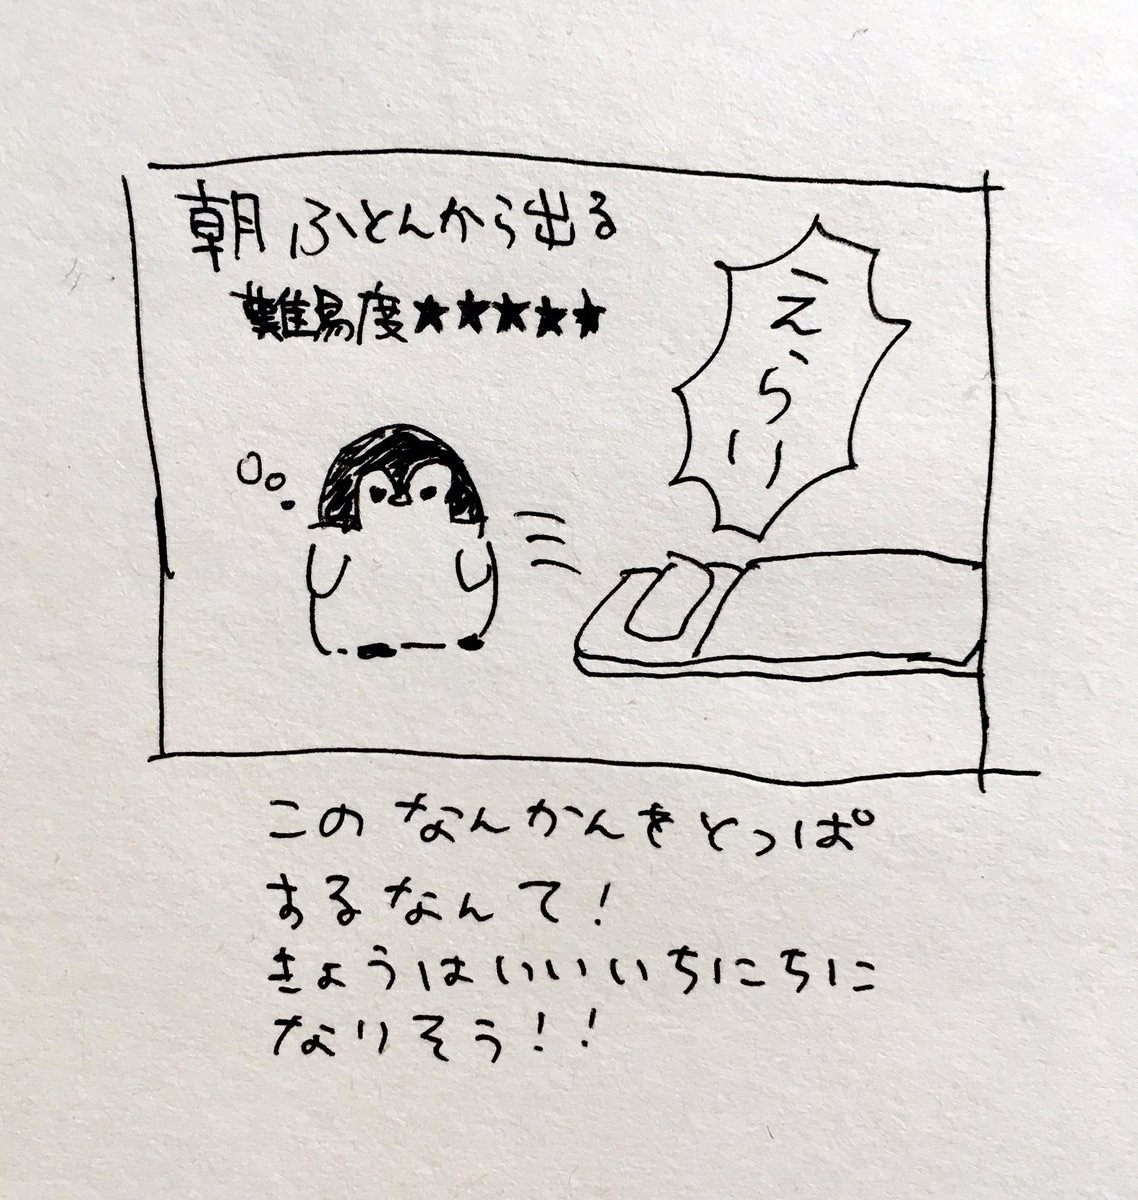 朝ふとんから出る
難易度★★★★★
えらい
このなんかんをとっぱ
するなんて!
きょうはいいいちにちに
なりそう!!